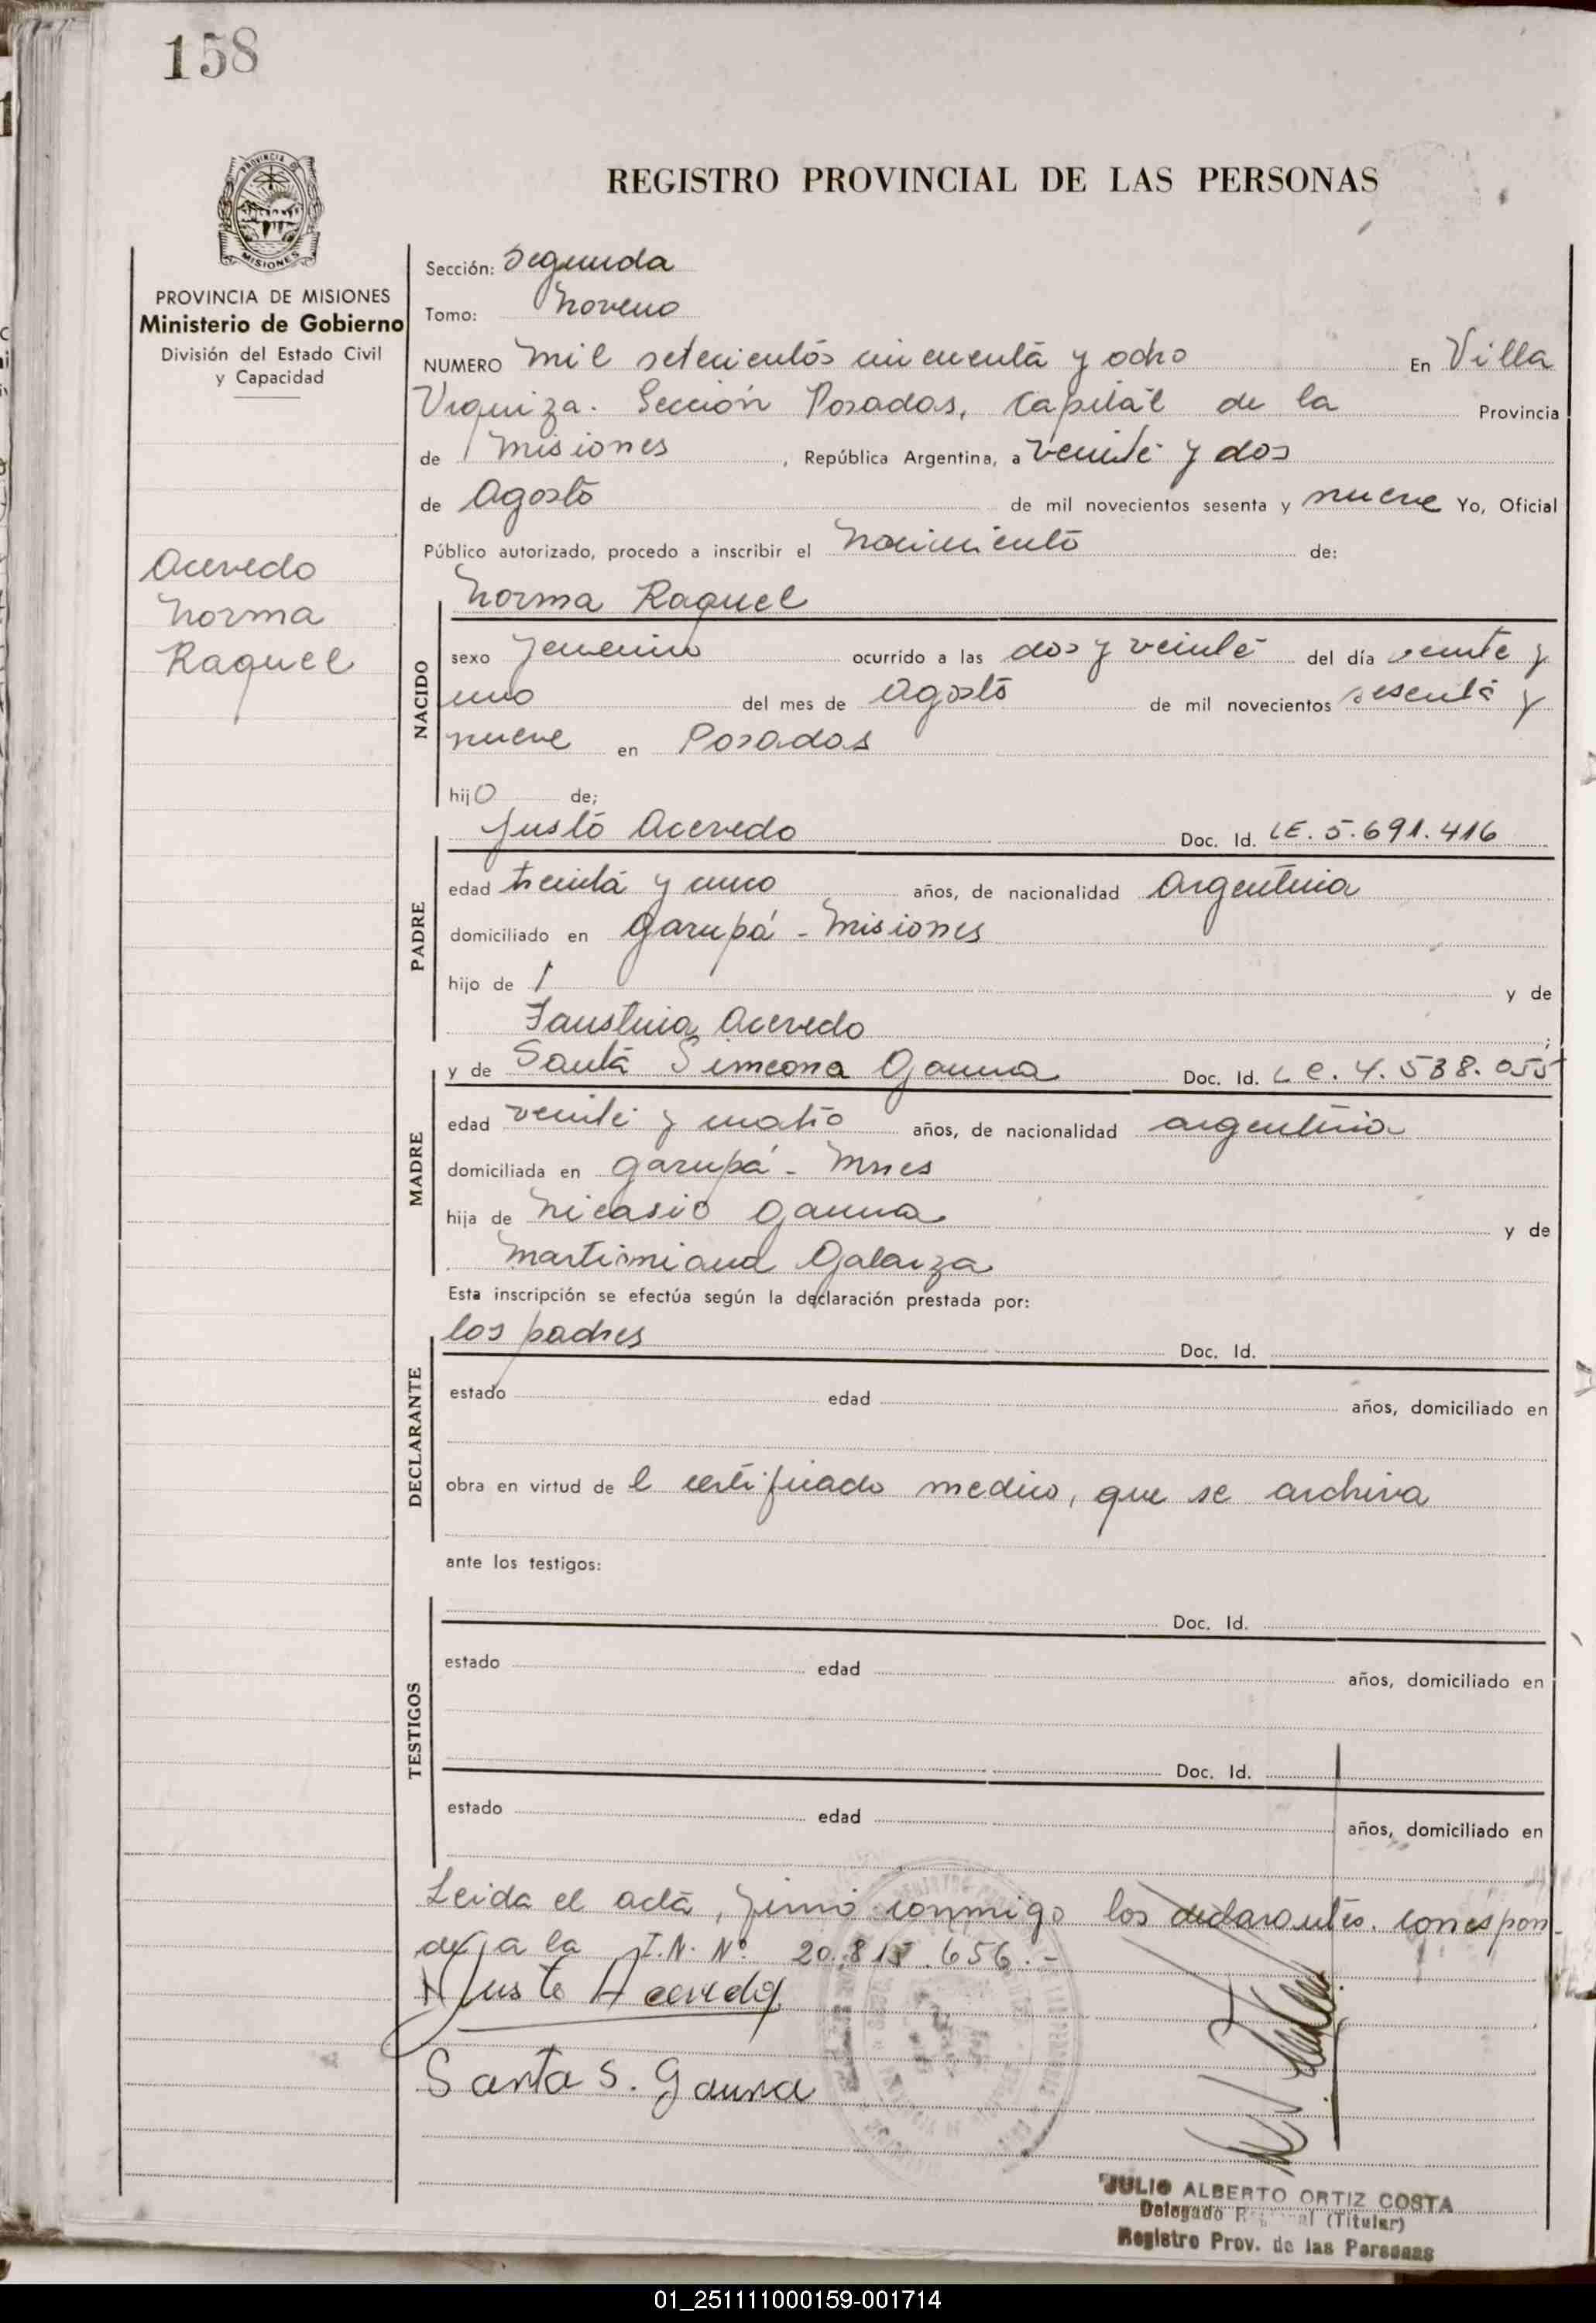 158
PROVINCIA DE
MISIONES
REGISTRO PROVINCIAL DE LAS PERSONAS
PROVINCIA DE MISIONES
Ministerio de Gobierno
División del Estado Civil
y Capacidad
Acevedo
Norma
Raquel
Sección: Segunda
Tomo: Noveno
NUMERO Mil setecientos cincuenta y ocho En Villa
Urquiza. Sección Posadas, Capital de la Provincia
de Misiones, República Argentina, a veinte y dos
de Agosto de mil novecientos sesenta y nueve Yo, Oficial
Público autorizado, procedo a inscribir el Nacimiento de:
Norma Raquel
NACIDO
sexo femenino ocurrido a las dos y veinte del día veinte y
uno del mes de Agosto de mil novecientos sesenta y
nueve en Posadas
hijo de;
Justo Acevedo Doc. Id. LE. 5.691.416
PADRE
edad treinta y cinco años, de nacionalidad Argentina
domiciliado en Garupá - Misiones
hijo de y de
Faustina Acevedo;
y de Santa Simeona Gauna Doc. Id. L C. 4. 538. 055
MADRE
edad veinte y cuatro años, de nacionalidad argentina
domiciliada en Garupá - Mnes
hija de Nicasio Gauna y de
Martimiana Galarza
Esta inscripción se efectúa según la declaración prestada por:
los padres Doc. Id.
DECLARANTE
estado edad años, domiciliado en
obra en virtud de l certificado medico, que se archiva
ante los testigos:
Doc. Id.
TESTIGOS
estado edad años, domiciliado en
Doc. Id.
estado edad años, domiciliado en
Leida el acta, firmó conmigo los declarantes. Correspon-
de a la I.N. Nº 20.815.656.-
Justo Acevedo
Santa S. Gauna
JULIO ALBERTO ORTIZ COSTA
Delegado (Titular)
Registro Prov. de las Personas
01_251111000159-001714